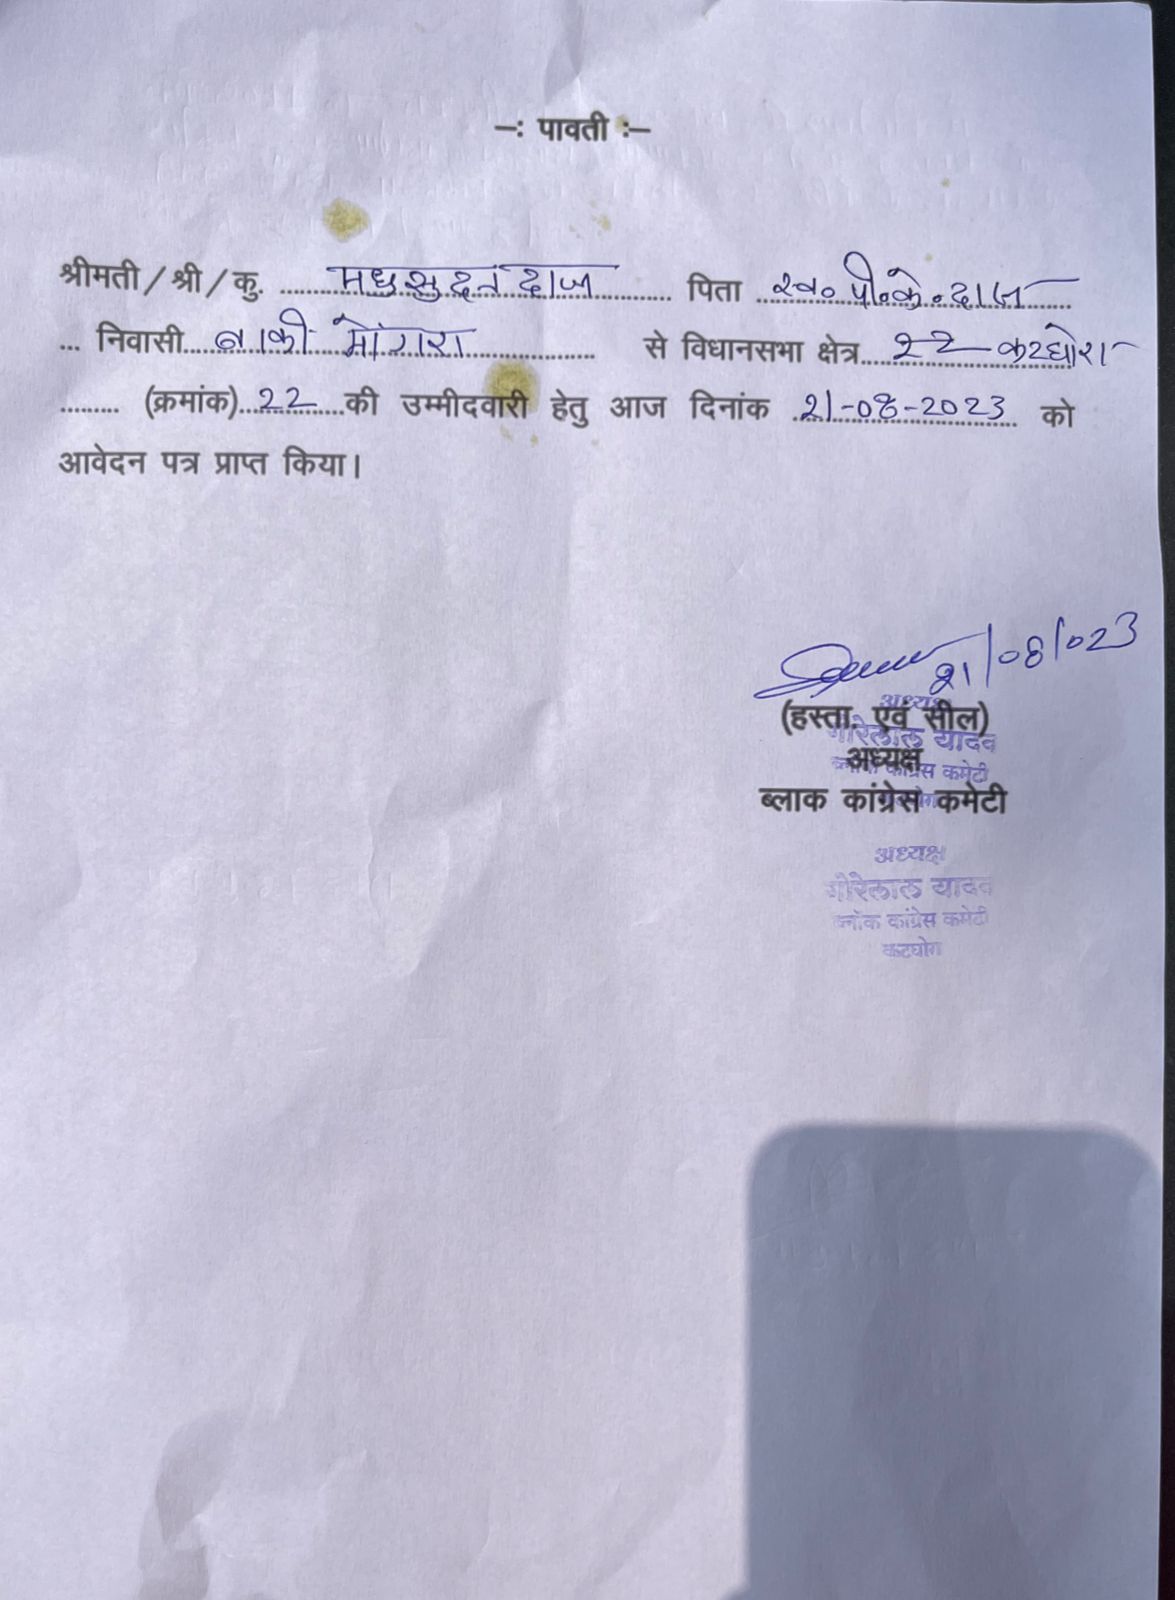 –: पावती :–
श्रीमती / श्री / कु. ..... मधुसुदन दास ..... पिता ..... स्व० पी०के०दास .....
... निवासी..... बाकी मोंगरा ..... से विधानसभा क्षेत्र..... 22 कटघोरा
......... (क्रमांक)..... 22 .....की उम्मीदवारी हेतु आज दिनांक ..... 21-08-2023 ..... को
आवेदन पत्र प्राप्त किया।
21/08/023
(हस्ता. एवं सील)
अध्यक्ष
गोरेलाल यादव
अध्यक्ष
ब्लाक कांग्रेस कमेटी
ब्लाक कांग्रेस कमेटी
अध्यक्ष
गोरेलाल यादव
ब्लॉक कांग्रेस कमेटी
कटघोरा